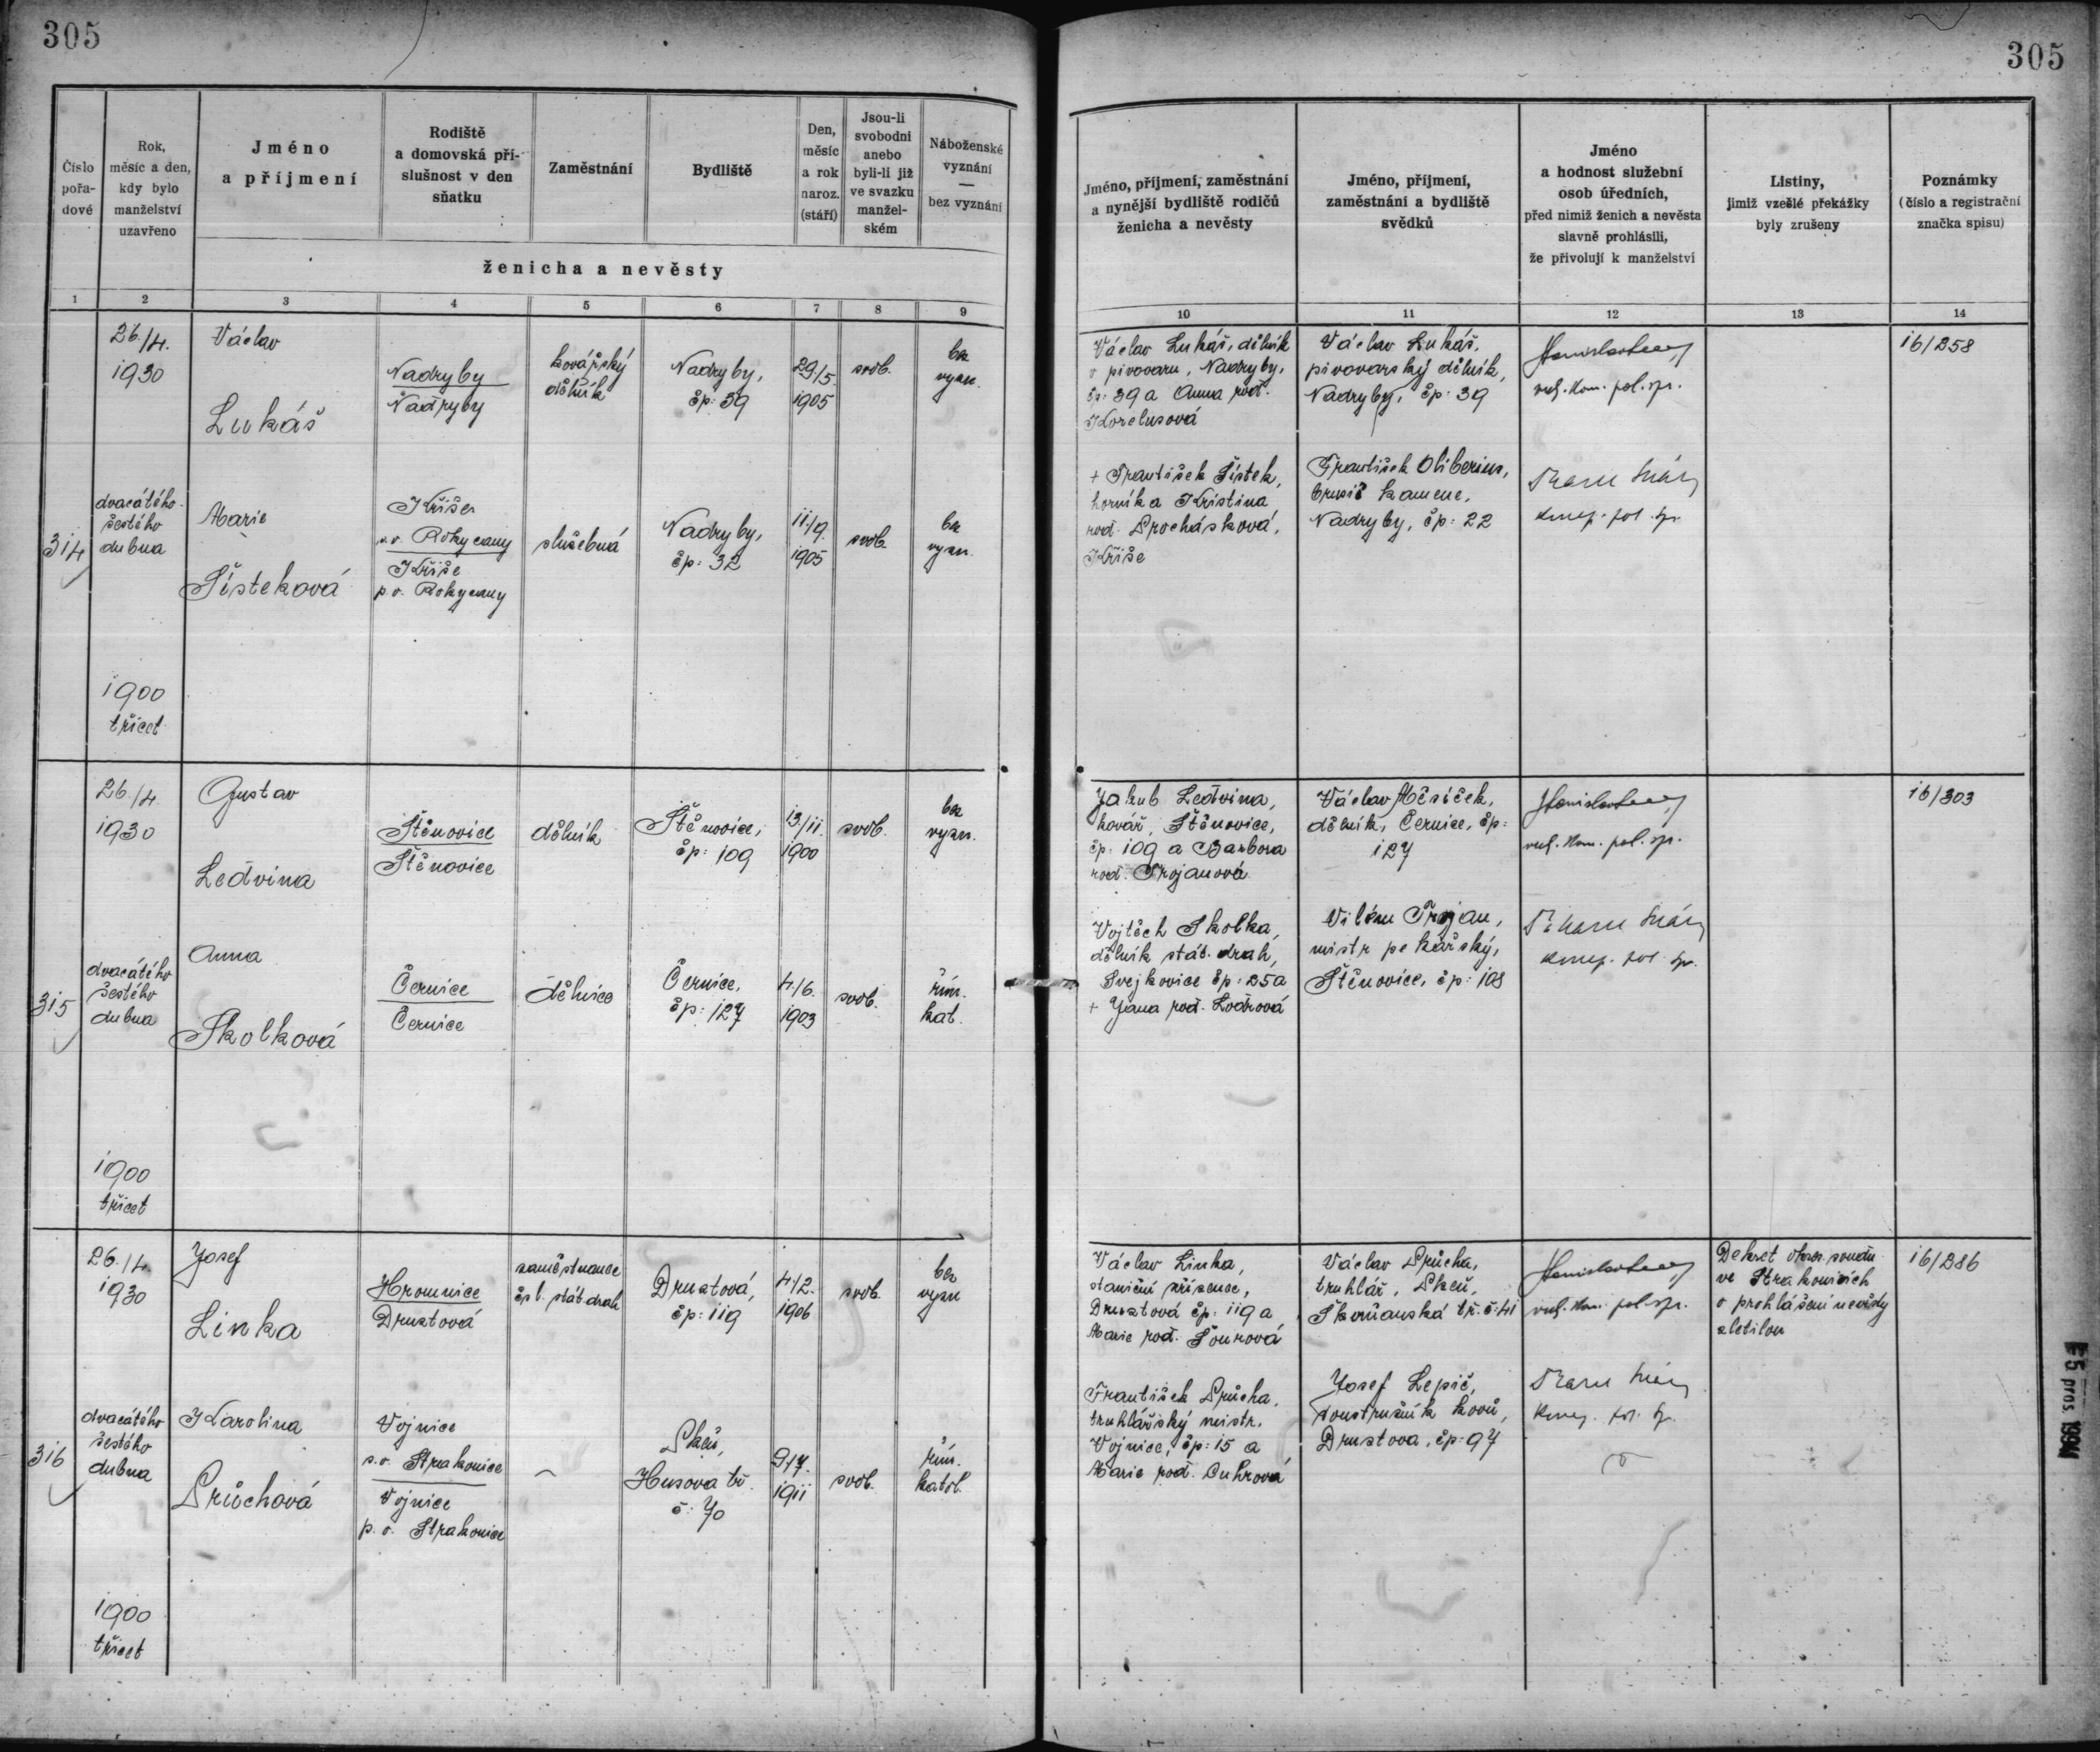 305
305
Číslo
pořa-
dové
Rok,
měsíc a den,
kdy bylo
manželství
uzavřeno
Jméno
a příjmení
Rodiště
a domovská pří-
slušnost v den
sňatku
Zaměstnání
Bydliště
Den,
měsíc
a rok
naroz.
(stáří)
Jsou-li
svobodni
anebo
byli-li již
ve svazku
manžel-
ském
Náboženské
vyznání
—
bez vyznání
ženicha a nevěsty
1 2 3 4 5 6 7 8 9
Jméno, příjmení, zaměstnání
a nynější bydliště rodičů
ženicha a nevěsty
Jméno, příjmení,
zaměstnání a bydliště
svědků
Jméno
a hodnost služební
osob úředních,
před nimiž ženich a nevěsta
slavně prohlásili,
že přivolují k manželství
Listiny,
jimiž vzešlé překážky
byly zrušeny
Poznámky
(číslo a registrační
značka spisu)
10 11 12 13 14
314
26./4.
1930
dvacátého
šestého
dubna
1900
třicet
Václav
Lukáš
Nadryby
Nadryby
kovářský
dělník
Nadryby,
čp: 39
29./5.
1905
svob.
bez
vyzn.
Marie
Šísteková
Kříše
s.o. Rokycany
Kříše
p.o. Rokycany
služebná
Nadryby,
čp: 32
11./9.
1905
svob.
bez
vyzn.
Václav Lukáš, dělník
v pivovaru, Nadryby,
čp: 39 a Anna roď.
Korelusová
+ František Šístek,
horník a Kristina
roď. Procházková,
Kříše
Václav Lukáš,
pivovarský dělník,
Nadryby, čp: 39
František Oliberius,
brusič kamene,
Nadryby, čp: 22
kom. pol. spr.
16/258
315
26./4.
1930
dvacátého
šestého
dubna
1900
třicet
Gustav
Leďvina
Štěnovice
Štěnovice
dělník
Štěnovice,
čp: 109
13/11.
1900
svob.
bez
vyzn.
Anna
Školková
Černice
Černice
dělnice
Černice,
čp: 127
4./6.
1903
svob.
řím.
kat.
Jakub Leďvina,
kovář, Štěnovice,
čp: 109 a Barbora
roď. Trojanová
Vojtěch Školka,
dělník stát. drah,
Svejkovice čp: 25 a
+ Jana roď. Loďrová
Václav Měsíček,
dělník, Černice, čp:
127
Vilém Trojan,
mistr pekařský,
Štěnovice, čp: 108
kom. pol. spr.
16/303
316
26./4.
1930
dvacátého
šestého
dubna
1900
třicet
Josef
Linka
Hromnice
Druztová
zaměstnanec
čsl. stát drah
Druztová,
čp: 119
4./2.
1906
svob.
bez
vyzn
Karolina
Průchová
Vojnice
s.o. Strakonice
Vojnice
p.o. Strakonice
Plzeň,
Husova tř.
č: 70
9./7.
1911
svob.
řím.
katol.
Václav Linka,
staniční zřízenec,
Druztová čp: 119 a
Marie roď. Šourová
František Průcha,
truhlářský mistr,
Vojnice, čp: 15 a
Marie roď. Cuhrová
Václav Průcha,
truhlář, Plzeň,
Skvrňanská tř. č: 41
Josef Lepič,
soustružník kovů,
Druztova, čp: 97
kom. pol. spr.
Dekret okres. soudu
ve Strakonicích
o prohlášení nevěsty
zletilou
16/286
5 pros. 1994